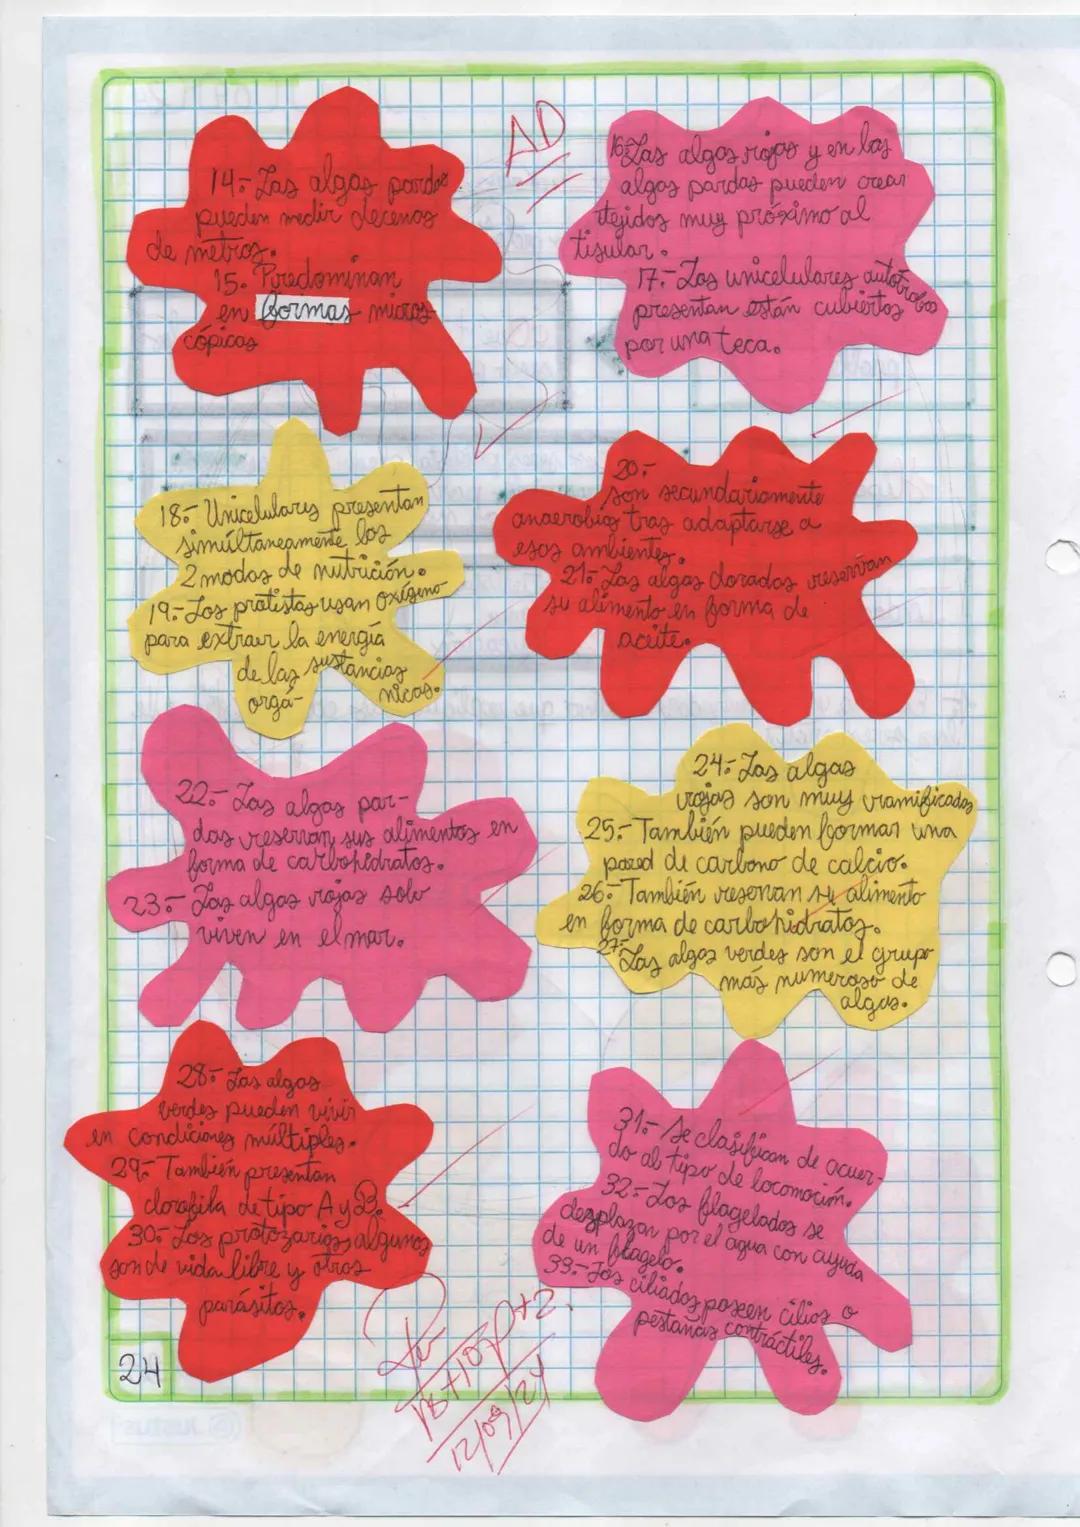 14.- Las algas pardas
pueden medir decenas
de metros.
15. Predominan
en formas micros-
cópicas
AD
16.- Las algas rojas y en las
algas pardas pueden crear
tejidos muy próximo al
tisular.
17.- Los unicelulares autótrofos
presentan están cubiertos
por una teca.
18.- Unicelulares presentan
simúltaneamente los
2 modos de nutrición.
19.- Los protistas usan oxígeno
para extraer la energía
de las sustancias
orgá- nicas.
20.-
son secundariamente
anaerobios tras adaptarse a
esos ambientes.
21.- Las algas doradas reservan
su alimento en forma de
aceite.
22.- Las algas par-
das reservan sus alimentos en
forma de carbohidratos.
23.- Las algas rojas solo
viven en el mar.
24.- Las algas
rojas son muy ramificadas
25.- También pueden formar una
pared de carbono de calcio.
26.- También reservan su alimento
en forma de carbohidratos.
27.-
Las algas verdes son el grupo
más numeroso de
algas.
28.- Las algas
verdes pueden vivir
en condiciones múltiples.
29.- También presentan
clorofila de tipo A y B.
30.- Los protozarios, algunos
son de vida libre y otros
parásitos.
31.- Se clasifican de acuer-
do al tipo de locomoción.
32.- Los flagelados se
desplazan por el agua con ayuda
de un flagelo.
33.- Los ciliados poseen cilios o
pestañas contráctiles.
24
12/09/24